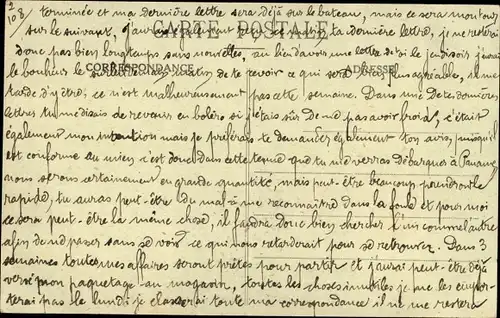 2/108 terminée et ma dernière lettre sera déjà sur le bateau, mais ce sera mon tour
CARTE POSTALE
sur le suivant, j'aurai également ta dernière lettre, je ne resterai
donc pas bien longtemps sans nouvelles, au lieu d'avoir une lettre d'ici le jeudi soir j'aurai
CORRESPONDANCE
ADRESSE
le bonheur de te revoir ce qui sera bien plus agréable, il me
tarde d'y être, ce n'est malheureusement pas cette semaine. Dans une de tes dernières
lettres tu me disais de revenir en boléro si j'étais sûr de ne pas avoir froid, c'était
également mon intention mais je préférais te demander également ton avis, puisqu'il
est conforme au mien c'est donc dans cette tenue que tu me verras débarquer à
nous serons certainement en grande quantité, mais peut-être beaucoup prendront le
rapide, tu auras peut-être du mal à me reconnaître dans la foule et pour moi
ce sera peut-être la même chose, il faudra donc bien chercher l'un comme l'autre
afin de ne pas passer sans se voir ce qui nous retarderait pour se retrouver. Dans 3
semaines toutes mes affaires seront prêtes pour partir et j'aurai peut-être déjà
versé mon paquetage au magasin, toutes les choses inutiles je ne les emporterai
pas le lundi je classerai toute ma correspondance il ne me restera